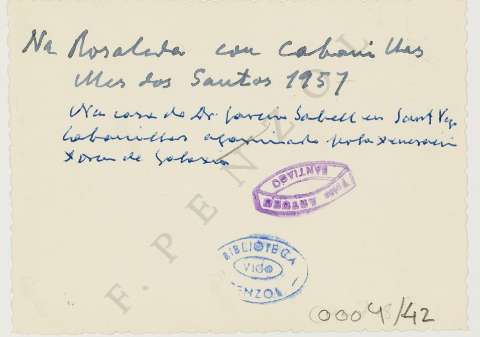 Na Rosaleda con Cabanillas
Mes dos Santos 1957
Na casa do Dr. García Sabell en Sant
Cabanillas agarimado pola xeneración
xoven de Galaxia
Foto ARTURO
SANTIAGO
BIBLIOTECA
VIGO
PENZOL
F. PENZOL
0004/42